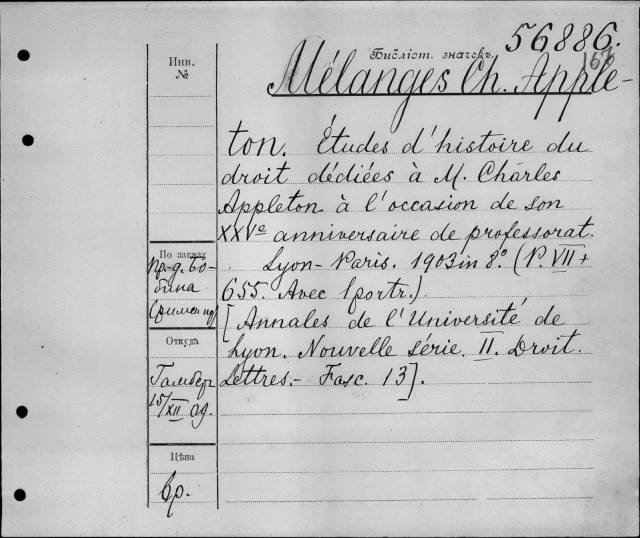 56886.
Библіот. значекъ.
Инв.
№
Mélanges Ch. Apple-
ton. Études d'histoire du
droit dédiées à M. Charles
Appleton à l'occasion de son
XXVe anniversaire de professorat.
Lyon-Paris. 1903 in 8.° (P. VII +
655. Avec 1 portr.)
[Annales de l'Université de
Lyon. Nouvelle série. II. Droit.
Lettres.- Fasc. 13].
По заказу
Бо-
бина
Откуда
15/XII 09.
Цѣна